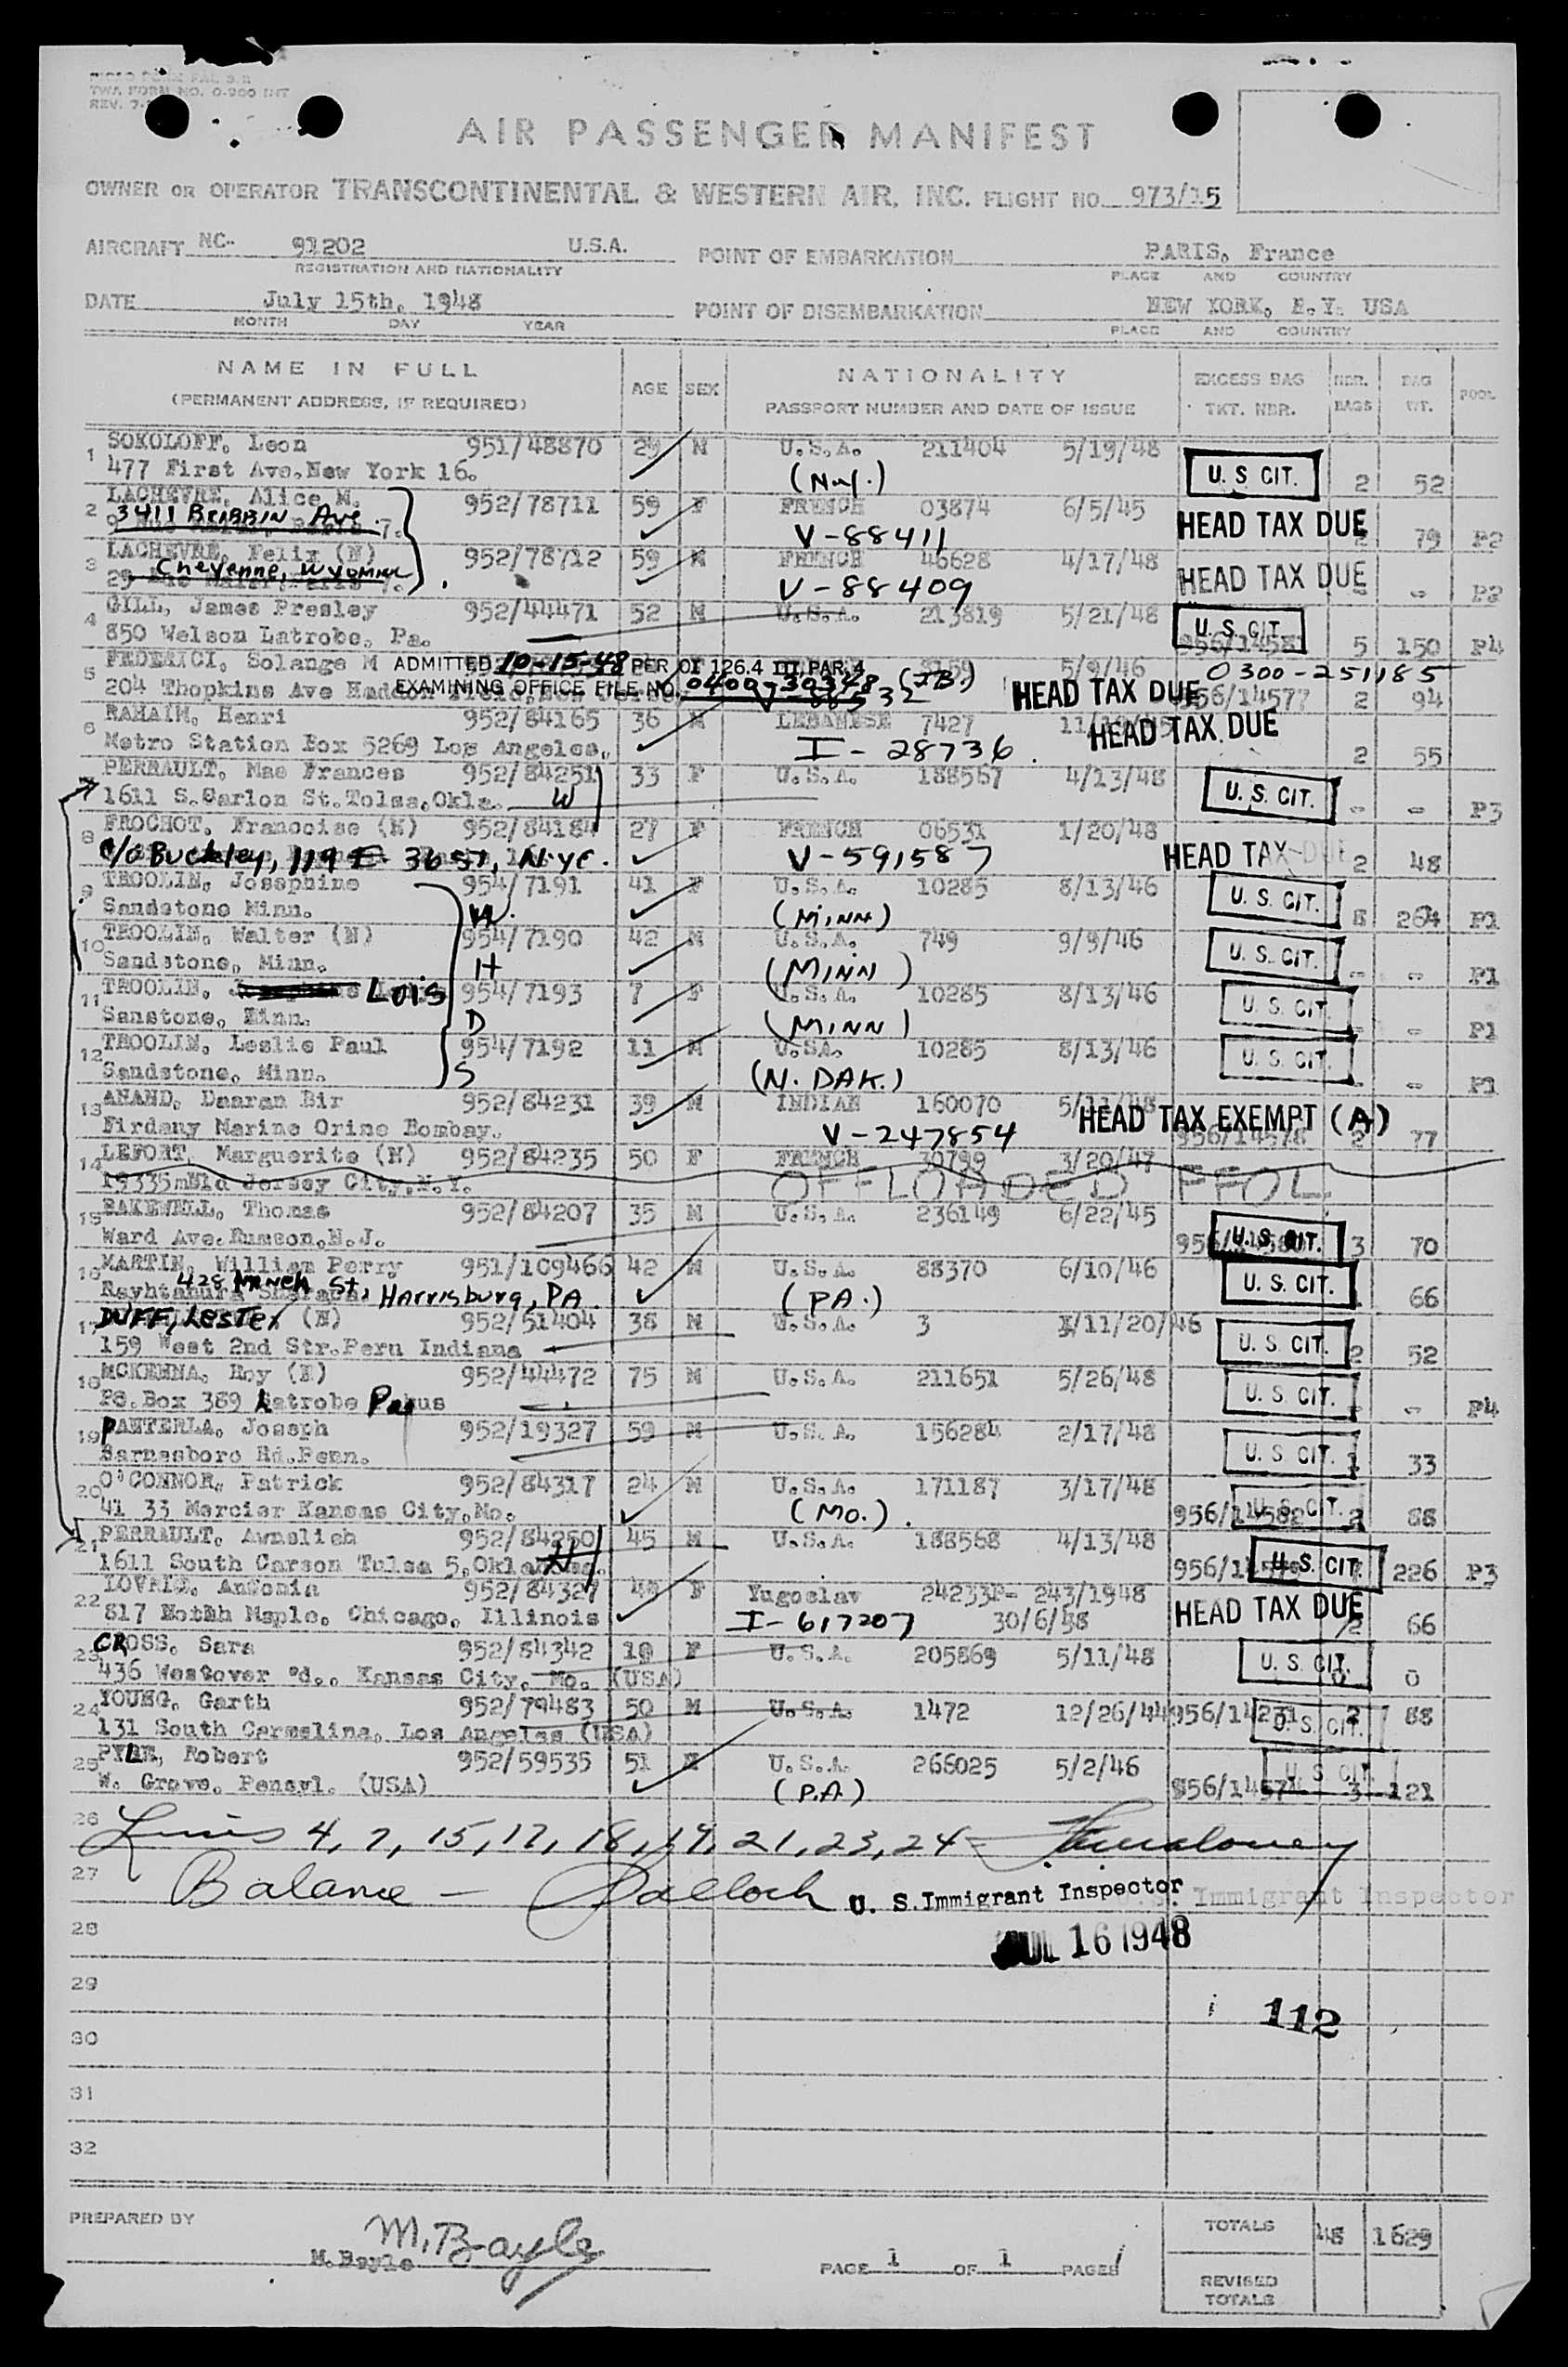 MICRO FORM PAL S.R
TWA FORM NO. 0-900 INT
REV. 7-
AIR PASSENGER MANIFEST
OWNER OR OPERATOR TRANSCONTINENTAL & WESTERN AIR, INC. FLIGHT NO. 973/15
AIRCRAFT NC- 91202 U.S.A. POINT OF EMBARKATION PARIS, France
REGISTRATION AND NATIONALITY PLACE AND COUNTRY
DATE July 15th, 1948 POINT OF DISEMBARKATION NEW YORK, N.Y. USA
MONTH DAY YEAR PLACE AND COUNTRY
NAME IN FULL AGE SEX NATIONALITY EXCESS BAG NBR. BAG POOL
(PERMANENT ADDRESS, IF REQUIRED) PASSPORT NUMBER AND DATE OF ISSUE TKT. NBR. BAGS WT.
1 SOKOLOFF, Leon 951/48870 29 M U.S.A. 211404 5/19/48
477 First Ave.New York 16. (Nat.) U.S CIT. 2 52
2 LACHEVRE, Alice M. 952/78711 59 F FRENCH 03874 6/5/45
3411 BRIBBIN Ave. 7. V-88411 HEAD TAX DUE 79 P2
3 LACHEVRE, Felix (N) 952/78712 59 M FRENCH 46628 4/17/48
29 Cheyenne, WYOMING 7. V-88409 HEAD TAX DUE - P2
4 GILL, James Presley 952/44471 52 M U.S.A. 213819 5/21/48
850 Welson Latrobe, Pa. U.S.CIT. 956/1458 5 150 P4
5 FEDERICI, Solange M ADMITTED 10-15-48 PER OI 126.4 III PAR. 4 5/9/46 0300-251185
204 Thopkins Ave EXAMINING OFFICE FILE NO. 0400-30348 (JB.) HEAD TAX DUE 956/14577 2 94
6 RAHAIM, Henri 952/84165 36 M LEBANESE 7427
Metro Station Box 5269 Los Angeles. I-28736. HEAD TAX DUE 2 55
PERRAULT, Mae Frances 952/84251 33 F U.S.A. 188567 4/13/48
1611 S.Carlon St.Tolsa,Okla. W U.S. CIT. - - P3
8 FROCHOT, Francoise (N) 952/84184 27 F FRENCH 06531 1/20/48
c/o Buckley, 119 E. 36 ST, N.Y.C. V-591587 HEAD TAX DUE 2 48
9 TROOLIN, Josephine 954/7191 41 F U.S.A. 10285 8/13/46
Sandstone Minn. W. (MINN) U.S. CIT. 8 264 P1
10 TROOLIN, Walter (N) 954/7190 42 M U.S.A. 749 9/9/46
Sandstone, Minn. H (MINN) U.S. CIT. - - P1
11 TROOLIN, Lois 954/7193 7 F U.S.A. 10285 8/13/46
Sanstone, Minn. D (MINN) U.S. CIT. - - P1
12 TROOLIN, Leslie Paul 954/7192 11 M U.SA. 10285 8/13/46
Sandstone, Minn. S (N. DAK.) U.S. CIT. - - P1
13 ANAND, Daaran Bir 952/84231 39 M INDIAN 160070 5/11/48
Firdany Marine Orine Bombay. V-247854 HEAD TAX EXEMPT (A) 956/14578 2 77
14 LEFORT, Marguerite (N) 952/84235 50 F FRENCH 30799 3/20/47
19335mEld Jersey City.N.Y. OFFLOADED PFOL
15 BAKEWELL, Thomas 952/84207 35 M U.S.A. 236149 6/22/45
Ward Ave.Rumson.N.J. U.S. CIT. 3 70
16 MARTIN, William Perry 951/109466 42 M U.S.A. 88370 6/10/46
428 MENCH St. Harrisburg, PA. (PA.) U.S. CIT. 66
17 DUFF, LESTER (N) 952/51404 38 M U.S.A. 3 11/20/46
159 West 2nd Str.Peru Indiana U.S CIT. 2 52
18 MCKENNA, Roy (N) 952/44472 75 M U.S.A. 211651 5/26/48
PO.Box 389 Latrobe Pa U.S CIT. - - P4
19 PANTERLA, Joseph 952/19327 59 M U.S.A. 156284 2/17/48
Barnesboro Rd.Penn. U.S CIT. 1 33
20 O'CONNOR, Patrick 952/84317 24 M U.S.A. 171187 3/17/48
41 33 Mercier Kansas City,Mo. (MO.). 956/14582 U.S. CIT. 2 88
21 PERRAULT, Awnslieh 952/84250 45 M U.S.A. 188568 4/13/48
1611 South Carson Tulsa 5,Oklahoma. H U.S. CIT. 226 P3
22 LOVRIC, Antonia 952/84327 F Yugoslav 24233P- 243/1948
817 North Maple, Chicago, Illinois I-617207 30/6/48 HEAD TAX DUE 2 66
23 CROSS, Sara 952/84342 19 F U.S.A. 205869 5/11/48
436 Westover Rd., Kansas City, Mo. (USA) U.S. CIT. 0 0
24 YOUNG, Garth 952/79483 50 M U.S.A. 1472 12/26/44 956/14231 2 88
131 South Carmelina, Los Angeles (USA) U.S. CIT.
25 PYLE, Robert 952/59535 51 M U.S.A. 266025 5/2/46 U.S CIT.
W. Grove, Pensyl. (USA) (P.A) 3 121
26 Lines 4, 7, 15, 17, 18, 19, 21, 23, 24 -
27 Balance - U. S. Immigrant Inspector Immigrant Inspector
28 JUL 16 1948
29
112
30
31
32
PREPARED BY M. Bayle TOTALS 48 1629
M.Bayle PAGE 1 OF 1 PAGES
REVISED
TOTALS